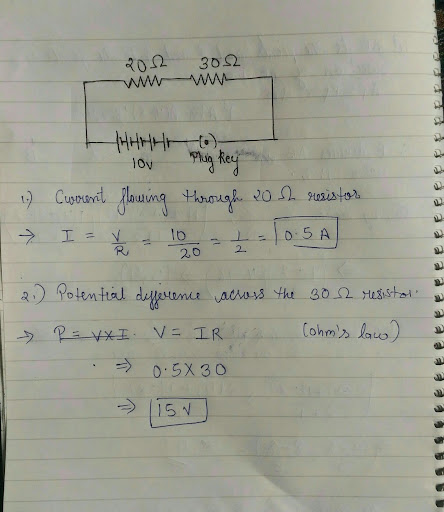 20Ω 30Ω
10v Plug key
1.) Current flowing through 20 Ω resistor
→ I = V/R = 10/20 = 1/2 = 0.5 A
2.) Potential difference across the 30 Ω resistor.
→ P = V×I. V = IR (ohm's law)
⇒ 0.5×30
⇒ 15 V